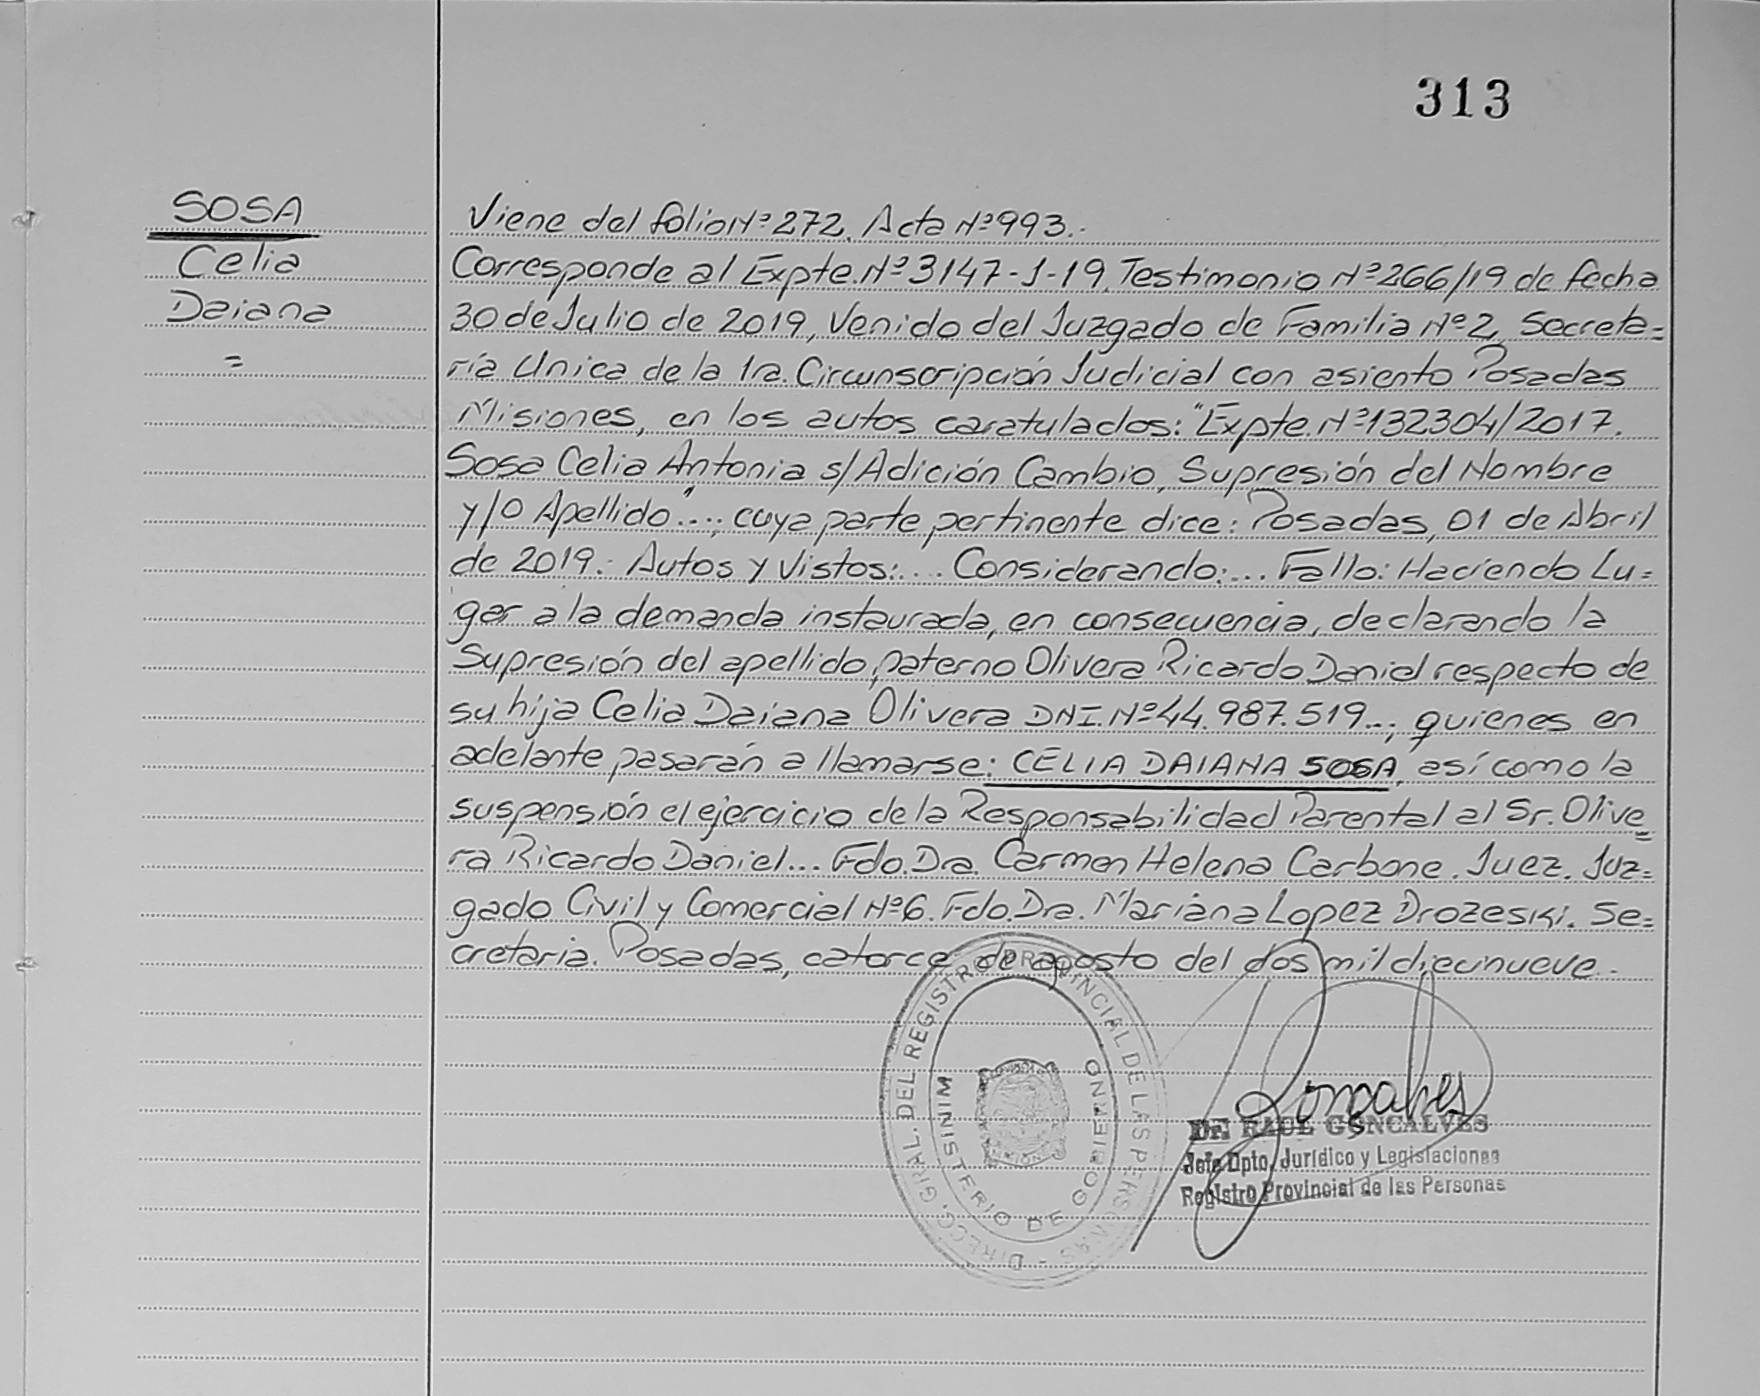 313
SOSA
Celia
Daiana
=
Viene del folio Nº 272. Acta Nº 993.-
Corresponde al Expte. Nº 3147-J-19. Testimonio Nº 266/19 de fecha
30 de Julio de 2019, Venido del Juzgado de Familia Nº 2, Secreta=
ría Unica de la 1ra. Circunscripción Judicial con asiento Posadas
Misiones, en los autos caratulados: "Expte. Nº 132304/2017.
Sosa Celia Antonia s/ Adición Cambio, Supresión del Nombre
y/o Apellido"...; cuya parte pertinente dice: Posadas, 01 de Abril
de 2019.- Autos y Vistos:... Considerando:... Fallo: Haciendo Lu=
gar a la demanda instaurada, en consecuencia, declarando la
Supresión del apellido paterno Olivera Ricardo Daniel respecto de
su hija Celia Daiana Olivera DNI. Nº 44.987.519...; quienes en
adelante pasarán a llamarse: CELIA DAIANA SOSA, así como la
suspensión el ejercicio de la Responsabilidad Parental al Sr. Olive=
ra Ricardo Daniel... Fdo. Dra. Carmen Helena Carbone. Juez. Juz=
gado Civil y Comercial Nº 6. Fdo. Dra. Mariana Lopez Drozeski. Se=
cretaria. Posadas, catorce de agosto del dos mil diecinueve.-
DIRECC. GRAL. DEL REGISTRO PROVINCIAL DE LAS PERSONAS -
MINISTERIO DE GOBIERNO
Goncalves
DR. RAUL GONCALVES
Jefe Dpto. Jurídico y Legislaciones
Registro Provincial de las Personas